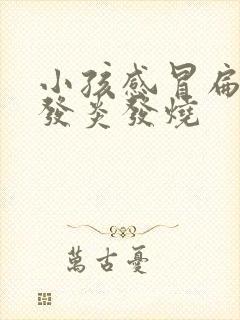 小孩感冒扁
發炎發燒
萬古憂